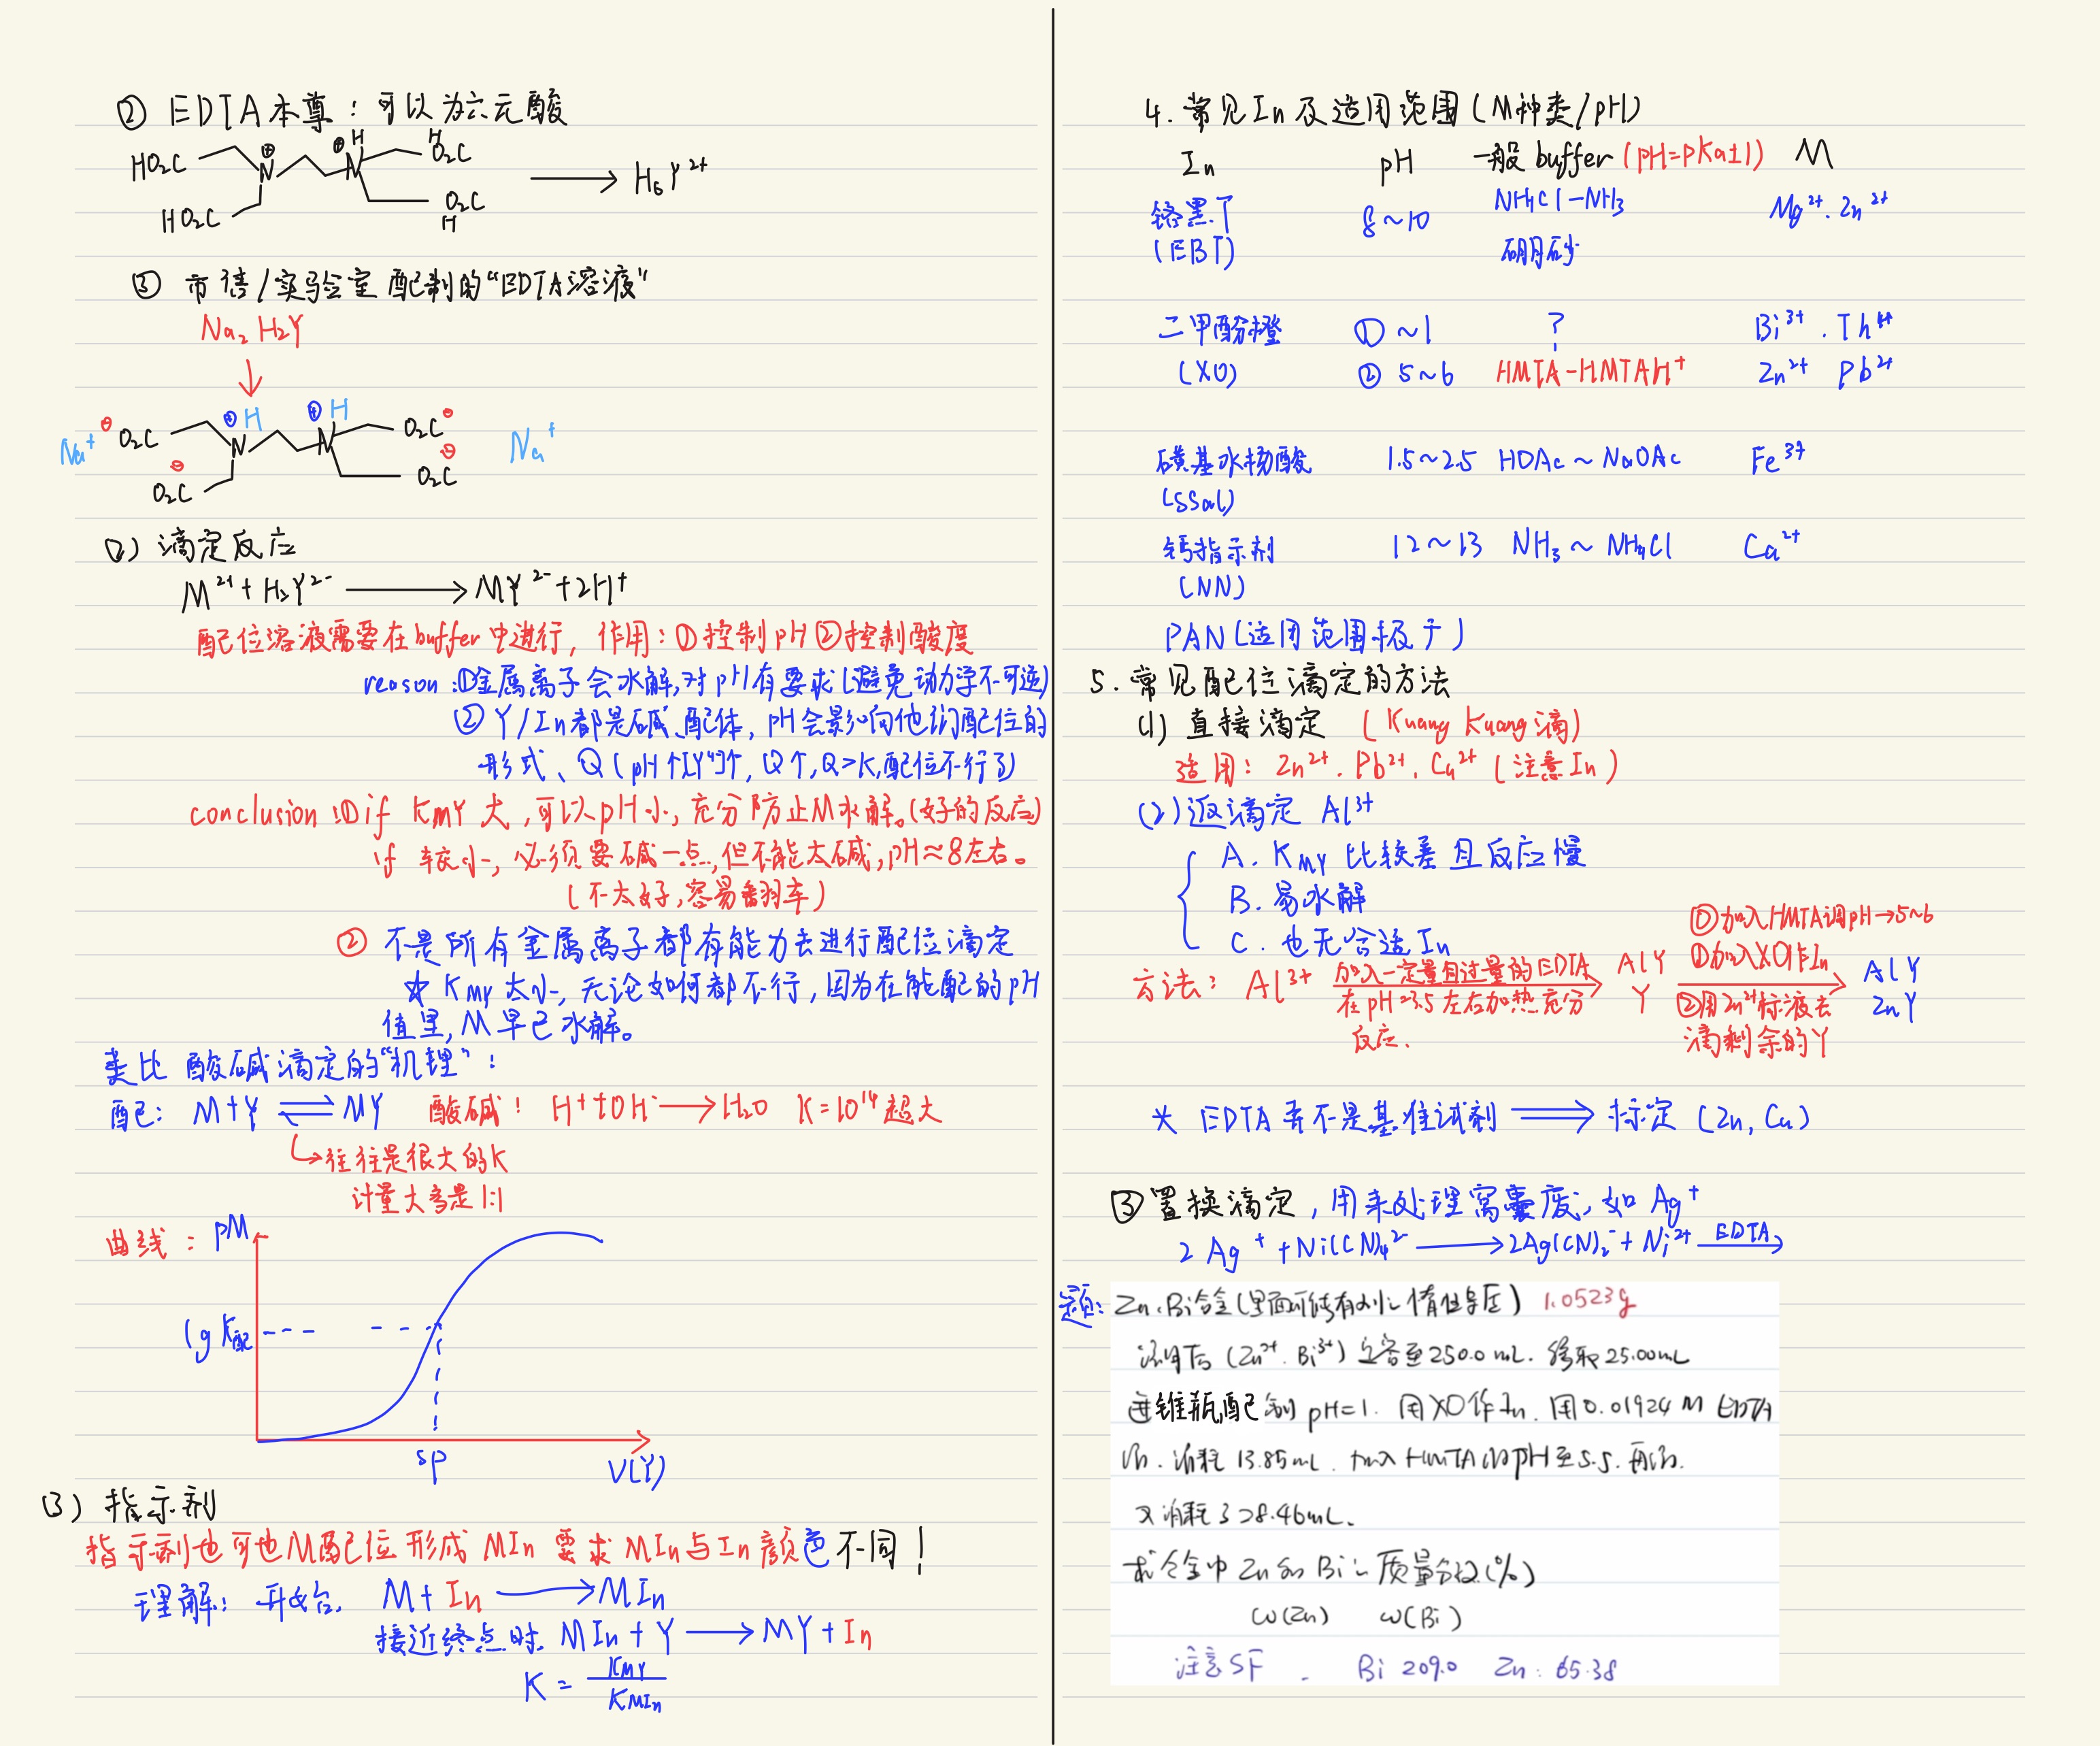 ② EDTA本尊：可以为六元酸
HO₂C N⊕ ⊕ H N H O₂C
HO₂C O₂C H ⟶ H₆Y²⁺
③ 市售/实验室配制的“EDTA溶液”
Na₂H₂Y
Na⁺ ⊖ O₂C ⊕ H N ⊕ H N O₂C ⊖ Na⁺
⊖ O₂C ⊖ O₂C
(2) 滴定反应
M²⁺ + H₂Y²⁻ ⟶ MY²⁻ + 2H⁺
配位溶液需要在buffer中进行，作用：①控制pH ②控制酸度
reason：①金属离子会水解，对pH有要求(避免动力学不可逆)
② Y/In都是碱、配体，pH会影响他们配位的
形式、Q (pH↑[Y⁴⁻]↑, Q↑, Q>K,配位不行了)
conclusion：①if KMY大，可以pH小，充分防止M水解。(好的反应)
if 较小，必须要碱一点，但不能太碱，pH≈8左右。
(不太好，容易翻车)
② 不是所有金属离子都有能力去进行配位滴定
☆ KMY太小，无论如何都不行，因为在能配的pH
值里，M早已水解。
类比 酸碱滴定的“机理”：
配：M+Y ⇌ MY 酸碱：H⁺+OH⁻ ⟶ H₂O K=10¹⁴ 超大
↳往往是很大的K
计量大多是1:1
曲线：pM
lg K配
sp V(Y)
(3) 指示剂
指示剂也可也M配位形成 MIn 要求 MIn与In颜色不同！
理解：开始. M+In ⟶ MIn
接近终点时. MIn + Y ⟶ MY + In
K = KMY / KMIn
4. 常见In及适用范围(M种类/pH)
In pH 一般buffer (pH=pKa±1) M
铬黑T 8~10 NH₄Cl-NH₃ Mg²⁺. Zn²⁺
(EBT) 硼砂
二甲酚橙 ① ~1 ? Bi³⁺. Th⁴⁺
(XO) ② 5~6 HMTA-HMTAH⁺ Zn²⁺ Pb²⁺
磺基水杨酸 1.5~2.5 HOAc ~ NaOAc Fe³⁺
(SSal)
钙指示剂 12~13 NH₃ ~ NH₄Cl Ca²⁺
(NN)
PAN (适用范围极广)
5. 常见配位滴定的方法
(1) 直接滴定 (Kuang Kuang滴)
适用：Zn²⁺. Pb²⁺. Ca²⁺ (注意In)
(2) 返滴定 Al³⁺
A. KMY 比较差且反应慢
B. 易水解
C. 也无合适In
方法：Al³⁺ 加入一定量且过量的EDTA 在pH≈3.5左右加热充分反应. ⟶ AlY Y ①加入HMTA调pH→5~6 ②加入XO作In ③用Zn²⁺标液去滴剩余的Y ⟶ AlY ZnY
* EDTA并不是基准试剂 ⟹ 标定 (Zn, Cu)
③ 置换滴定，用来处理窝囊废，如 Ag⁺
2Ag⁺ + Ni(CN)₄²⁻ ⟶ 2Ag(CN)₂⁻ + Ni²⁺ EDTA⟶
题：Zn、Bi合金(里面可能有少量惰性杂质) 1.0523g
溶解后 (Zn²⁺. Bi³⁺) 定容至250.0 mL. 移取25.00mL
进锥瓶配制 pH=1. 用XO作In. 用0.01924 M EDTA
滴. 消耗 13.85mL. 加入HMTA调pH至5.5. 再滴.
又消耗了28.46mL.
求合金中Zn和Bi的质量分数(%)
ω(Zn) ω(Bi)
注意SF. Bi 209.0 Zn：65.38